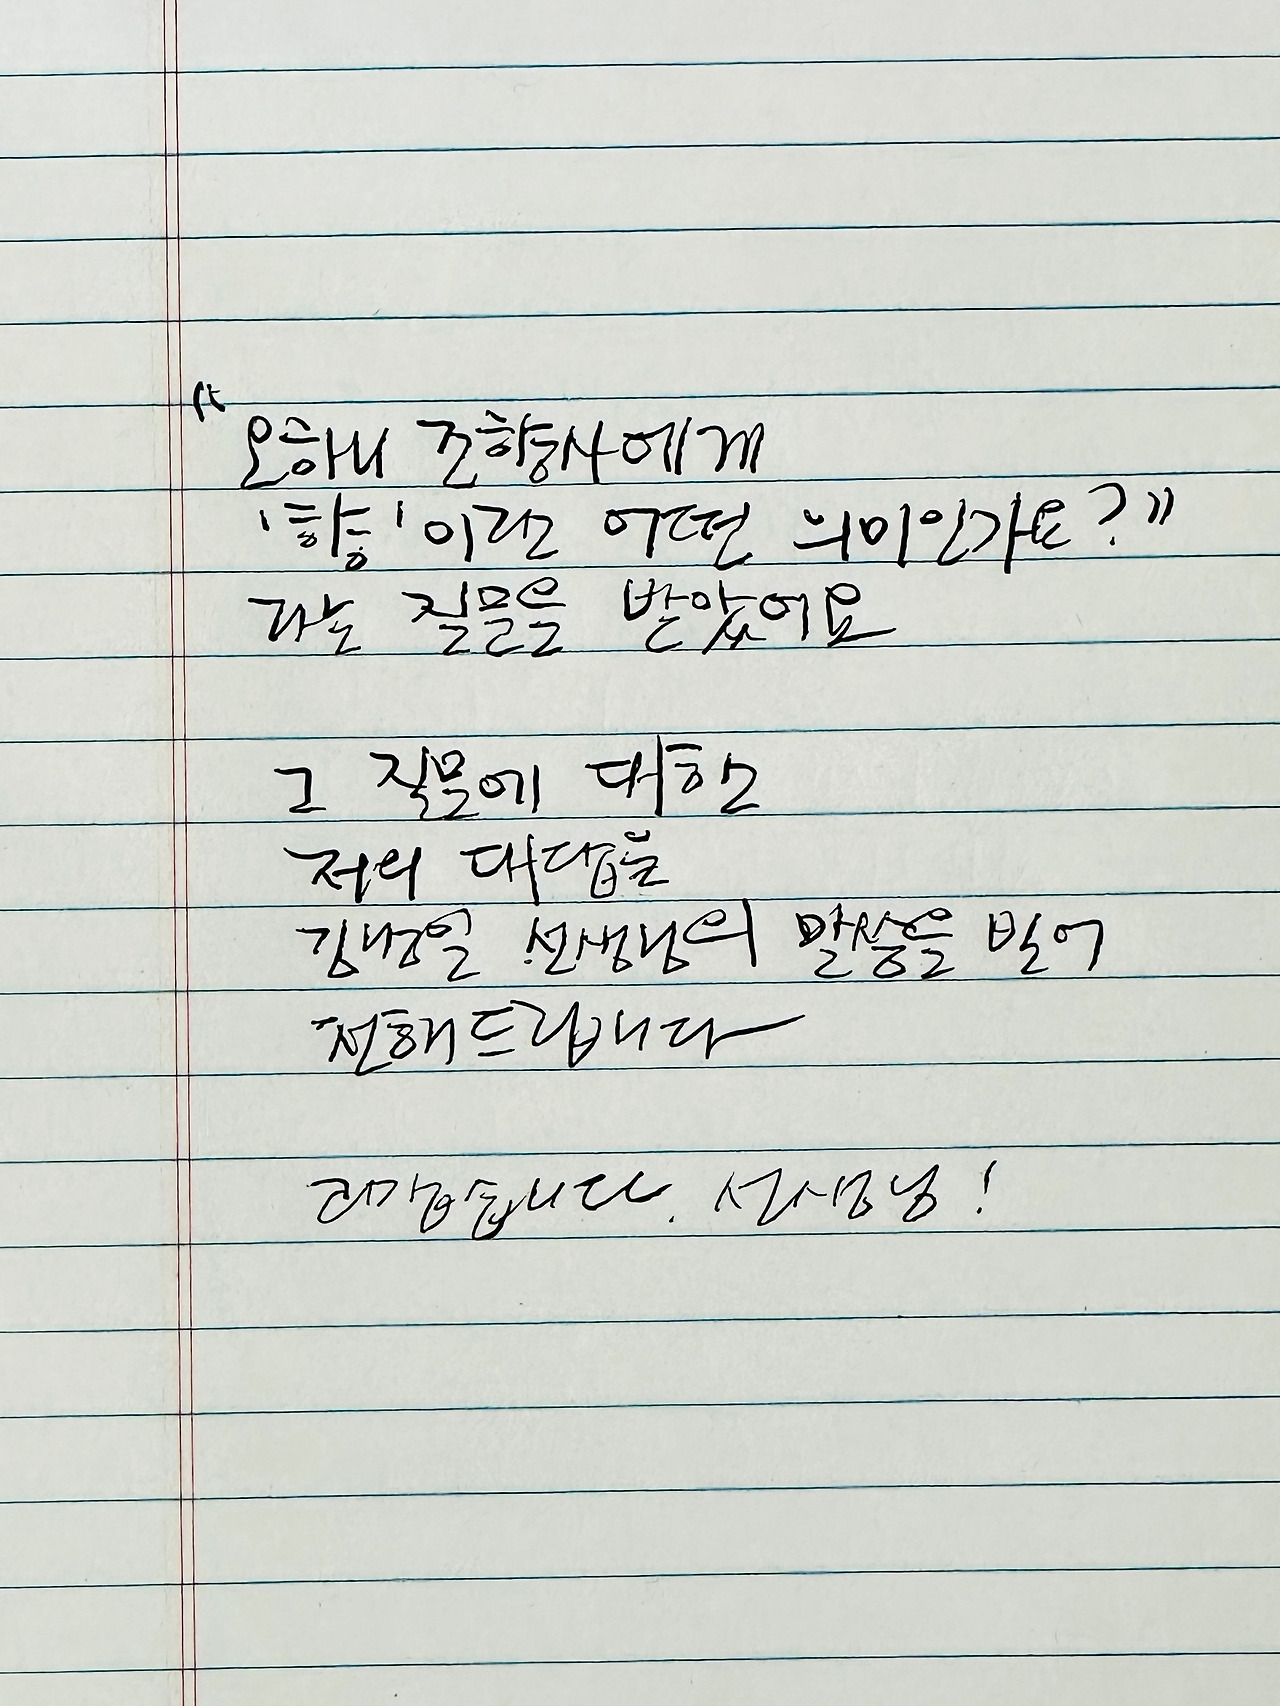 "오하니 조향사에게
'향'이란 어떤 의미인가요?"
라는 질문을 받았어요
그 질문에 대한
저의 대답을
선생님의 말씀을 빌어
전해드립니다
고맙습니다. 선생님!